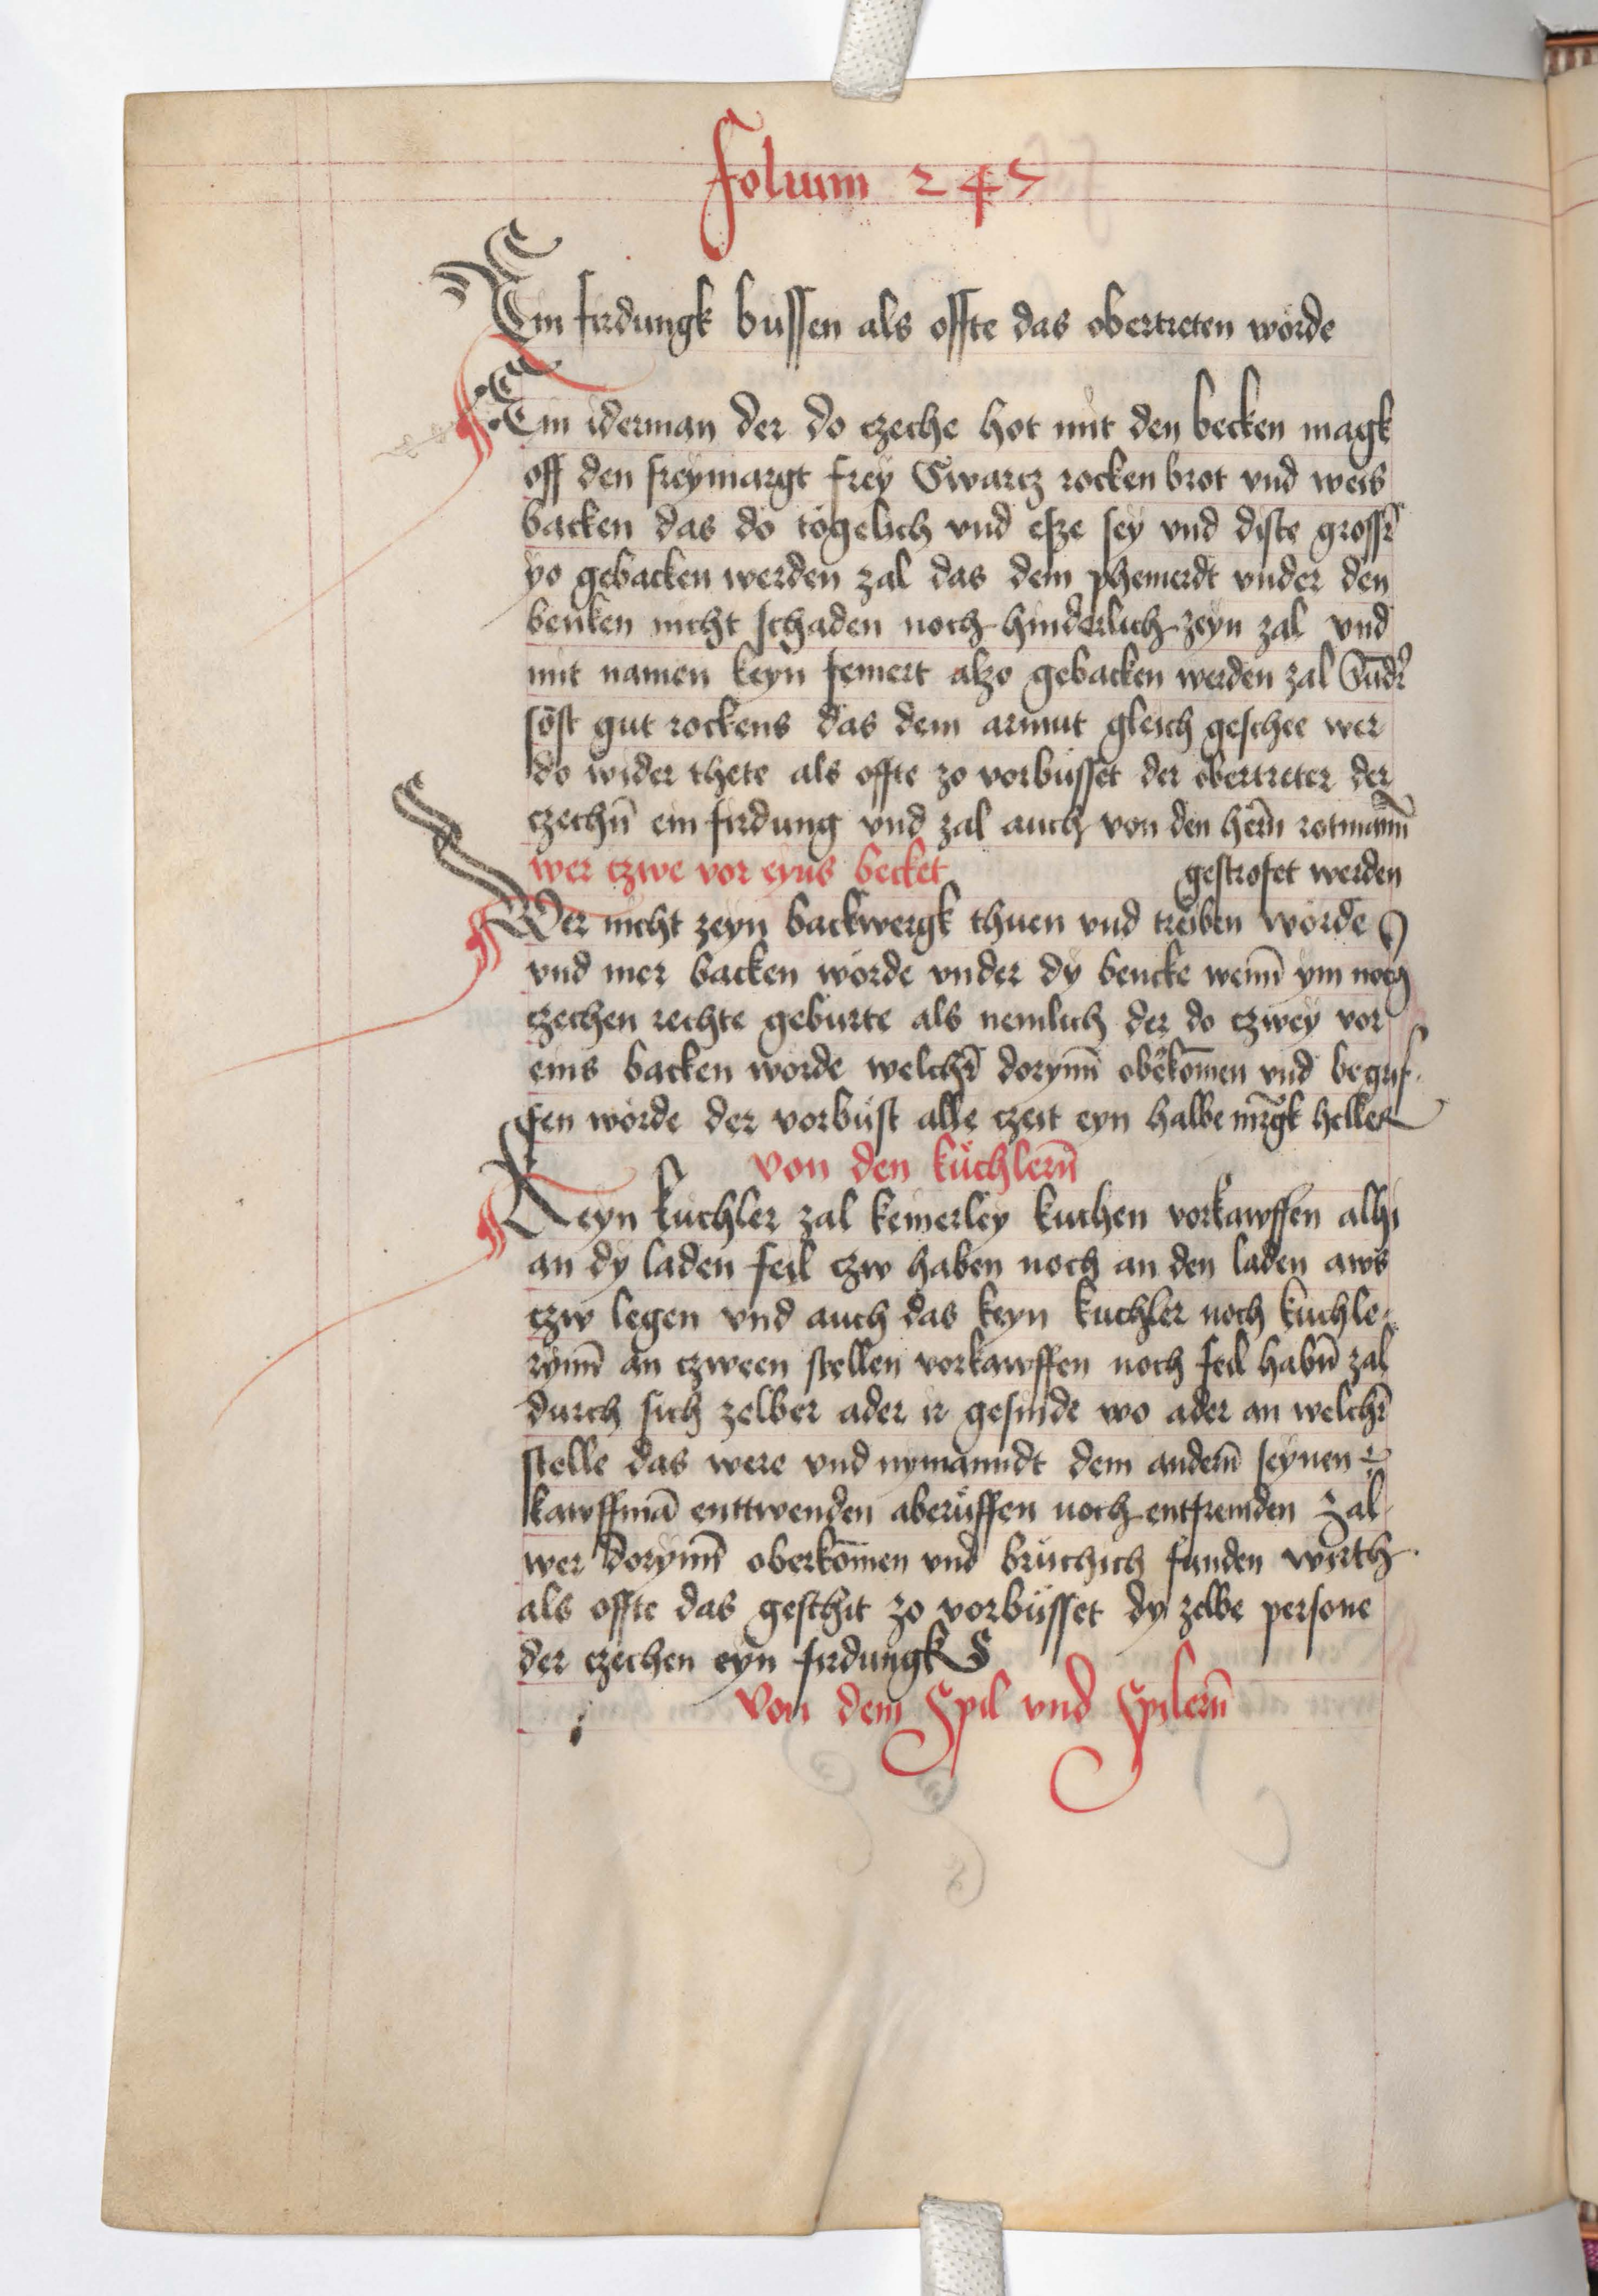 folium 245
Ein firdungk bussen als offte das obertreten worde
Ein iderman der do czeche hot mit den becken magk
off den freymargt frey Swarcz rocken brot vnd weis
backen das do togelich vnd esze sey vnd diste grosser̄
yo gebacken werden zal das dem phenwerdt vnder den
benken nicht schaden noch hinderlich zeyn zal vnd
mit namen keyn femert alzo gebacken werden zal Sūder
söst gut rockens das dem armut gleich geschee wer
do wider thete als offte zo vorbusset der obertreter der
czechn̄ ein firdung vnd zal auch von den hern̄ rotmann̄
wer czwe vor eyns becket gestrofet werden
Wer nicht zeyn backwergk thuen vnd treiben worde
vnd mer backen worde vnder dy bencke wenn̄ ym noch
czechen rechte geburte als nemlich der do czwey vor
eins backen worde welcher̄ dorynn̄ oberkom̄en vnd begrif
fen worde der vorbust alle czeit eyn halbe mrgk heller
von den kuchlern̄
Keyn kuchler zal keinerley kuchen vorkawffen alhi
an dy laden feil czw haben noch an den laden aws
czw legen vnd auch das keyn kuchler noch kuchle
rynn̄ an czween stellen vorkawffen noch feil habn̄ zal
durch sich zelber ader ir gesinde wo ader an welcher̄
stelle das were vnd nymanndt dem andern̄ seynen
kawffmā enttwenden aberuffen noch entfremden zal
wer dorynn̄ oberkom̄en vnd bruchich funden wirth
als offte das geschit zo vorbusset dy zelbe persone
der czechen eyn firdungk
Von dem Spil vnd Spilern̄